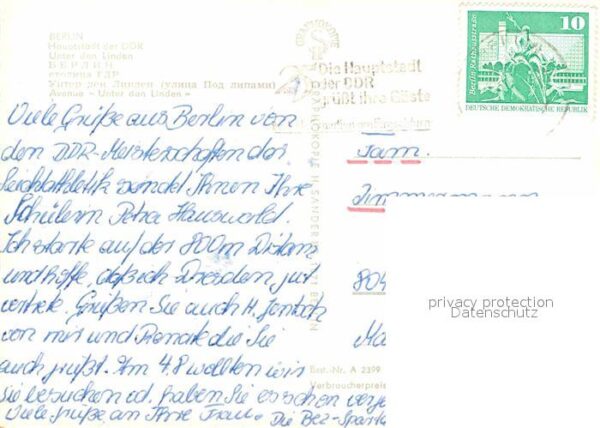 BERLIN
Hauptstadt der DDR
Unter den Linden
БЕРЛИН
столица ГДР
Унтер ден Линден (улица Под липами)
Avenue « Unter den Linden »
Viele Grüße aus Berlin von
den DDR-Meisterschaften der
Leichtathletik sendet Ihnen Ihre
Schülerin Petra Hauswald.
Ich starte auf der 800m Distanz
und hoffe, daß ich Dresden gut
vertrete. Grüßen Sie auch H.
von mir und Renate die Sie
auch grüßt. Am 4.8 wollten wir
Sie besuchen od. haben Sie es schon
Viele Grüße an Ihre Frau. Die Bez-
Best.-Nr. A 2399
Verbraucherpreis
GRAPHOKOPIE H. SANDER BERLIN
Die Hauptstadt
der DDR
grüßt ihre Gäste
10
Berlin Rathausstraße
DEUTSCHE DEMOKRATISCHE REPUBLIK
Fam.
Zimmermann
804
privacy protection
Datenschutz